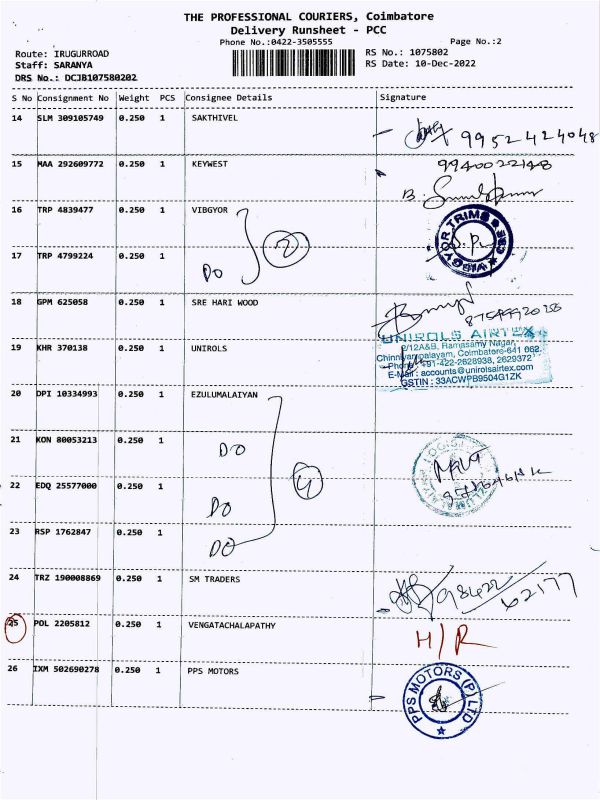 THE PROFESSIONAL COURIERS, Coimbatore
Delivery Runsheet - PCC
Phone No.:0422-3505555 Page No.:2
Route: IRUGURROAD RS No.: 1075802
Staff: SARANYA RS Date: 10-Dec-2022
DRS No.: DCJB107580202
S No Consignment No Weight PCS Consignee Details Signature
14 SLM 309105749 0.250 1 SAKTHIVEL 9952424048
15 MAA 292609772 0.250 1 KEYWEST 9940022148
B.
16 TRP 4839477 0.250 1 VIBGYOR
VIBGYOR TRIMS
2
17 TRP 4799224 0.250 1 DO
18 GPM 625058 0.250 1 SRE HARI WOOD
19 KHR 370138 0.250 1 UNIROLS
UNIROLS AIRTEX
2/12A&B, Ramasamy Nagar,
Chinniyampalayam, Coimbatore-641 062.
Phone: +91-422-2628938, 2629372
E-Mail : accounts@unirolsairtex.com
GSTIN : 33ACWPB9504G1ZK
20 DPI 10334993 0.250 1 EZULUMALAIYAN
21 KON 80053213 0.250 1 DO
4
22 EDQ 25577000 0.250 1 DO
23 RSP 1762847 0.250 1 DO
24 TRZ 190008869 0.250 1 SM TRADERS 98422
62177
25 POL 2205812 0.250 1 VENGATACHALAPATHY H/R
26 IXM 502690278 0.250 1 PPS MOTORS
PPS MOTORS (P) LTD